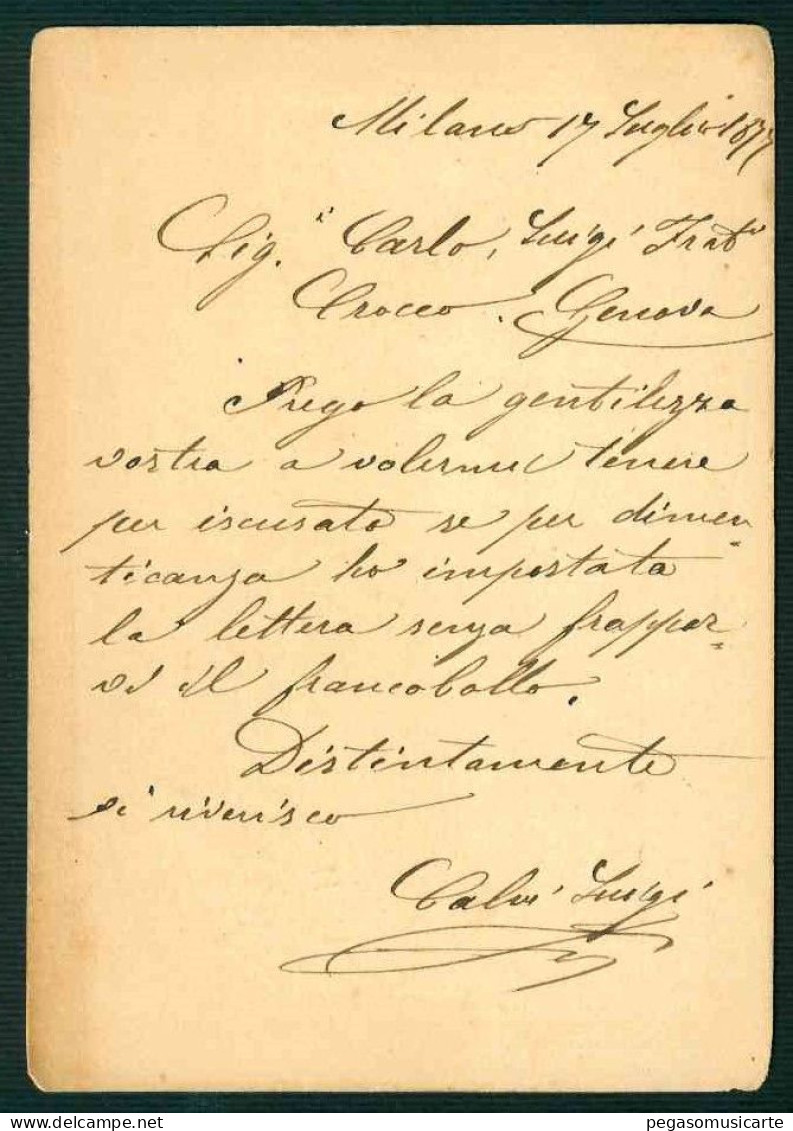 Milano 17 Luglio 1877
Sig.ri Carlo, Luigi Frat.i
Crocco. Genova
Prego la gentilezza
vostra a volermi tenere
per iscusato se per dimen=
ticanza ho impostata
la lettera senza frappor=
vi il francobollo.
Distintamente
vi riverisco
Calvi Luigi
pegasomusicarte